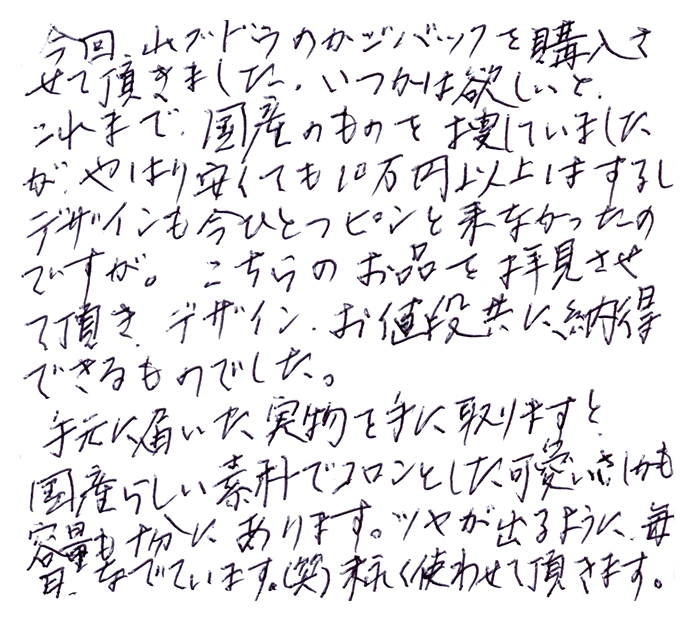 今回、山ブドウのかごバックを購入さ
せて頂きました。いつかは欲しいと、
これまで、国産のものを捜していました
が、やはり安くても10万円以上はするし
デザインも今ひとつピンと来なかったの
ですが。こちらのお品を拝見させ
て頂き、デザイン、お値段共に、納得
できるものでした。
手元に届いた、実物を手に取りますと、
国産らしい素朴でコロンとした可愛いさ、しかも
容量も十分にあります。ツヤが出るように、毎
日、なでています。(笑) 末永く使わせて頂きます。